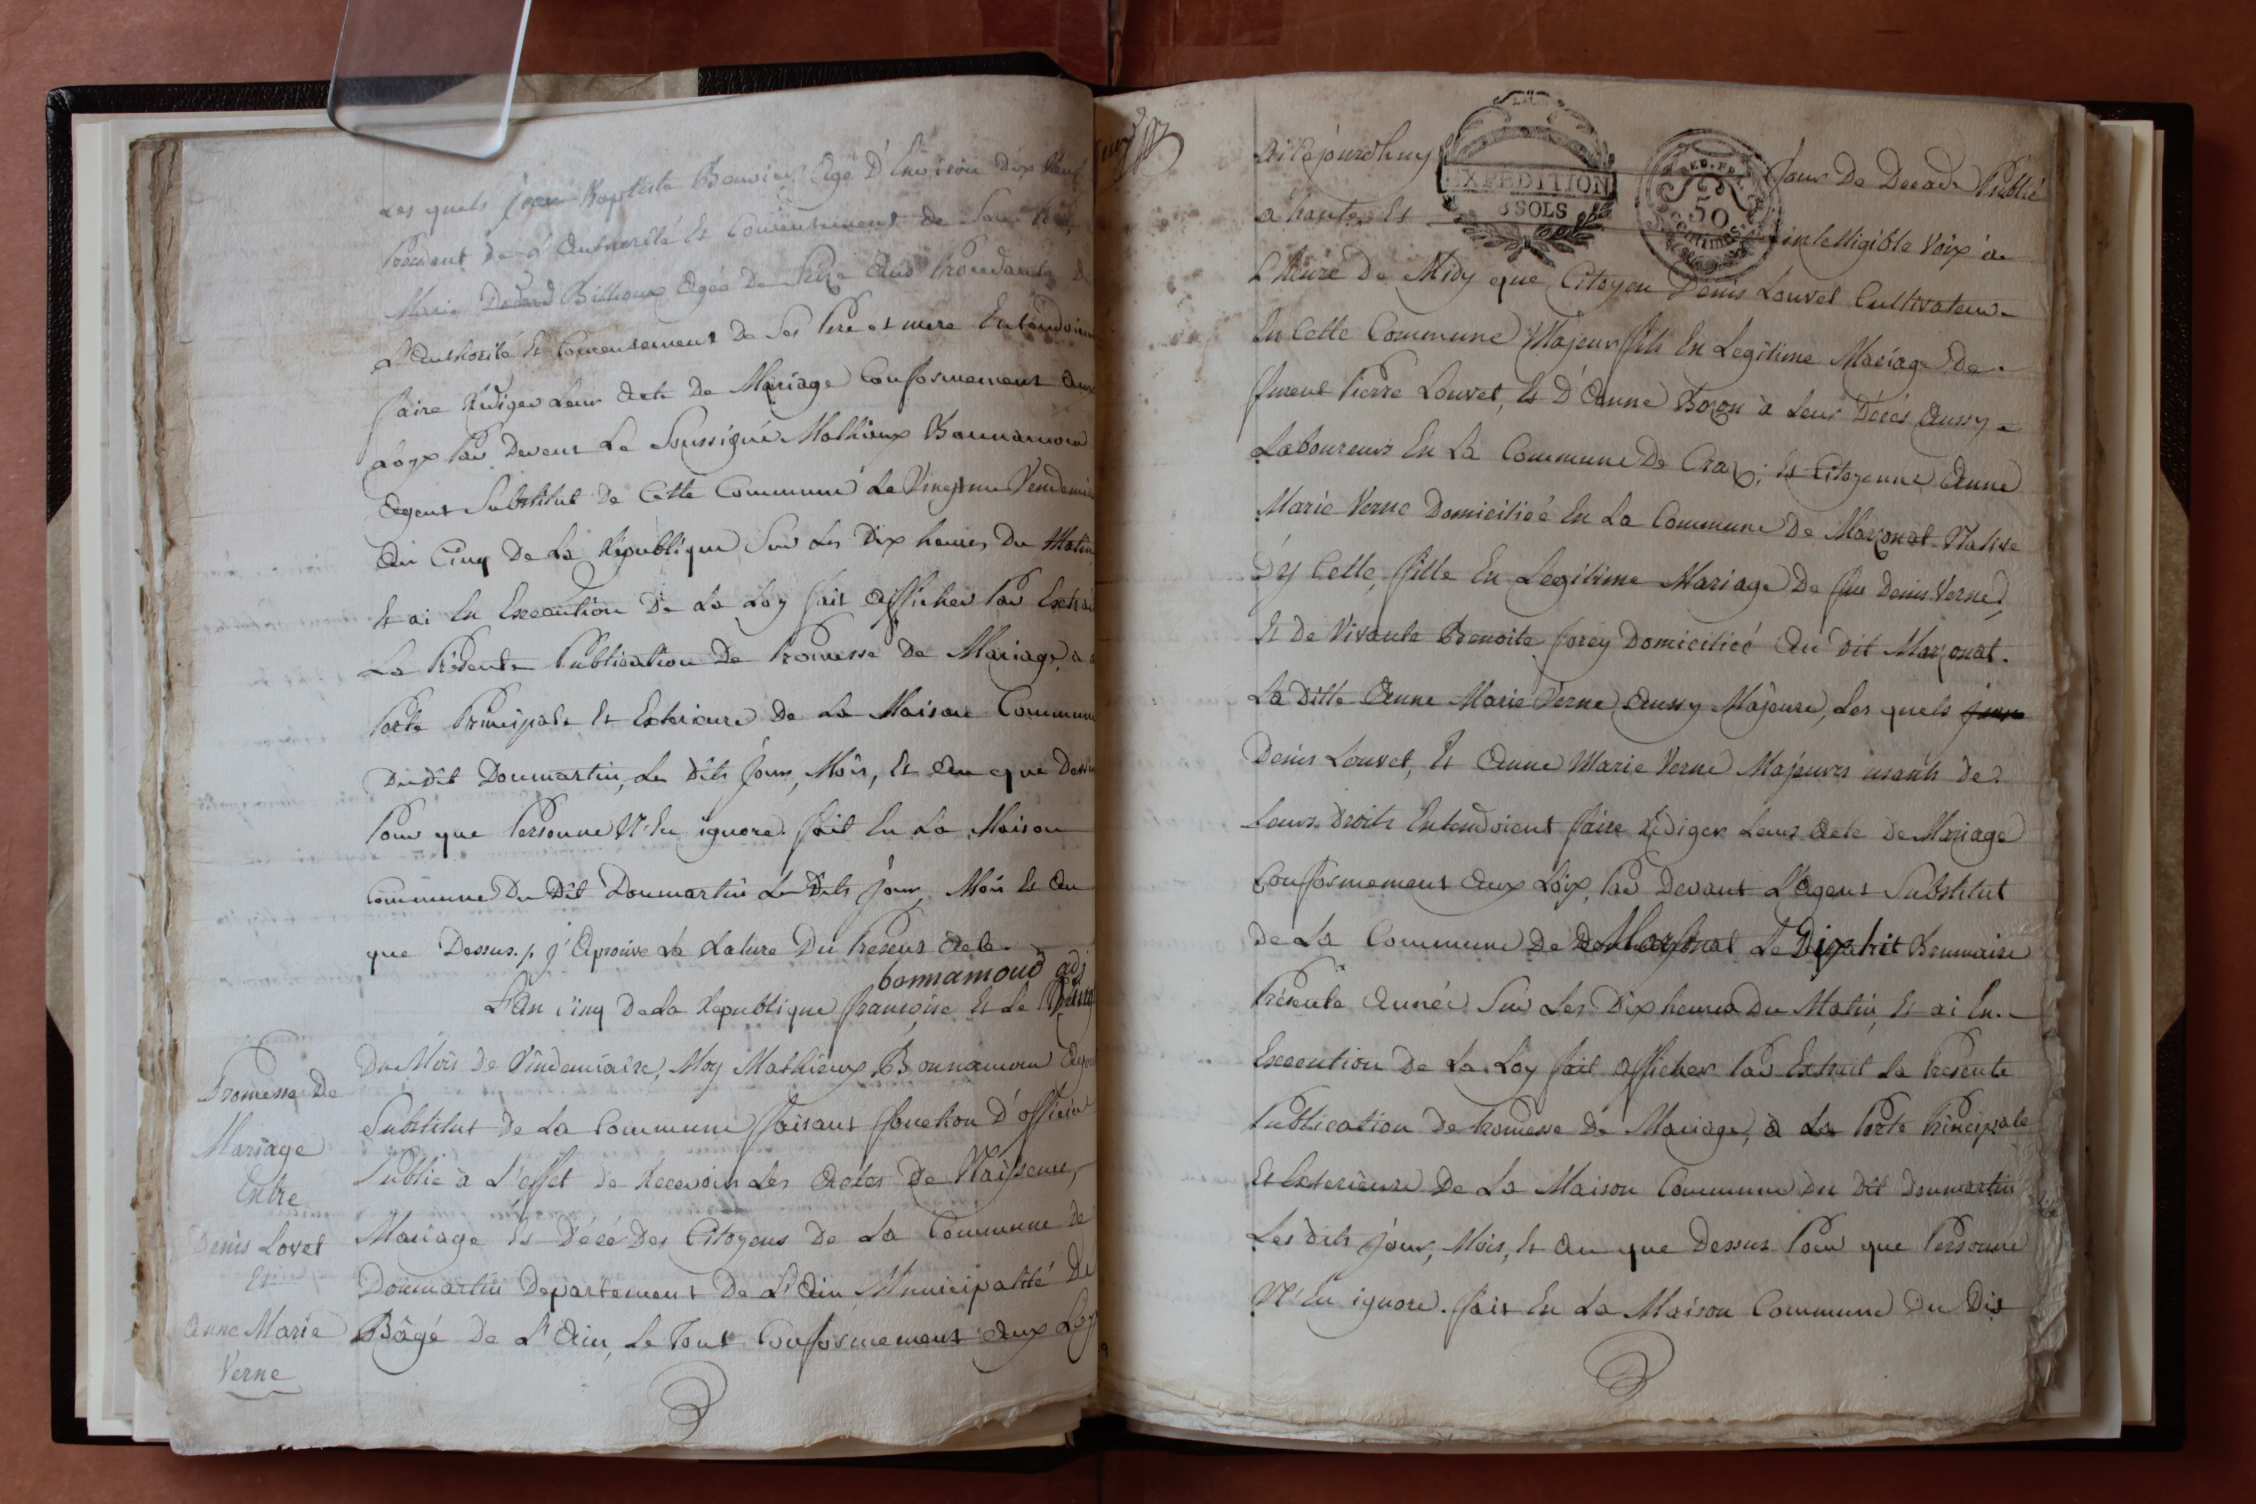 Les quels Jean Baptiste Bouvier Agé D'Environ Dix Neuf
Procédant de L'Authorité Et Consentement de Son
Marie Billioux Agée De Seize Ans Procedante De
L'Authorité Et Consentement de Ses Pere et mere Entendoient
faire Rediger Leur Acte De Mariage Conformement Aux
Loyx Par Devant Le Soussigné Mathieux Bonnamour
Agent Substitut de Cette Commune Le Vendemiaire
An Cinq De La Republique Sur Les Dix heures Du Matin
Et ai En Execution De La Loy fait Afficher Par Extrait
La Présente Publication De Promesse De Mariage, a
Porte Principale Et Exterieure De La Maison Commune
Du dit Donmartin, Les dits Jour, Mois, Et An que Dessus
Pour que Personne N'En ignore. fait En La Maison
Commune Du Dit Donmartin Les dits Jour, Mois Et An
que Dessus. J'Aprouve La Rature Du Present Acte.
bonnamoud adj
L'An cinq De La Republique françoise Et Le
Du Mois de Vindemiaire, Moy Mathieux Bonnamour Agent
Substitut De La Commune faisant fonction D'officier
Public à L'effet de Recevoir Les Actes De Naissence,
Mariage Et Décé Des Citoyens De La Commune de
Donmartin Departement De L'Ain Municipalité De
Bâgé De L'Ain, Le Tout Conformement Aux Loy
Promesse De
Mariage
Entre
Denis Lovet
Et
Anne Marie
Verne
Ai Cejourdhuy Jour De Decade Publié
a haute, Et intelligible Voix à
L'heure De Midy que Citoyen Denis Louvet Cultivateur
En Cette Commune Majeur fils En Legitime Mariage De
furent Pierre Louvet, Et D'Anne Bozon à Leur Décés Aussy
Laboureurs En La Commune De Cra; Et Citoyenne Anne
Marie Verne Domiciliée En La Commune De Marzonat Native
D'y Celle, fille En Legitime Mariage De feu Denis Verne,
Et De Vivante Benoite forey Domiciliée Au dit Marzonat.
La Ditte Anne Marie Verne Aussy Majeure, Les quels Jean
Denis Louvet, Et Anne Marie Verne Majeurs usants de
Leurs Droits Entendoient faire Rediger Leur Acte De Mariage
Conformement Aux Loix, Par Devant L'Agent Substitut
De La Commune De Marsonat Le Dix huit Brumaire
Présente Année Sur Les Dix heures Du Matin, Et ai En
Execution De La Loy fait afficher Par Extrait La Presente
Publication De Promesse De Mariage, a La Porte Principale
Et Exterieure De La Maison Commune du Dit Donmartin
Les dits Jour, Mois, Et An que Dessus Pour que Personne
N'En ignore. fait En La Maison Commune Du Dit
EXPEDITION
3 SOLS
50
Centimes